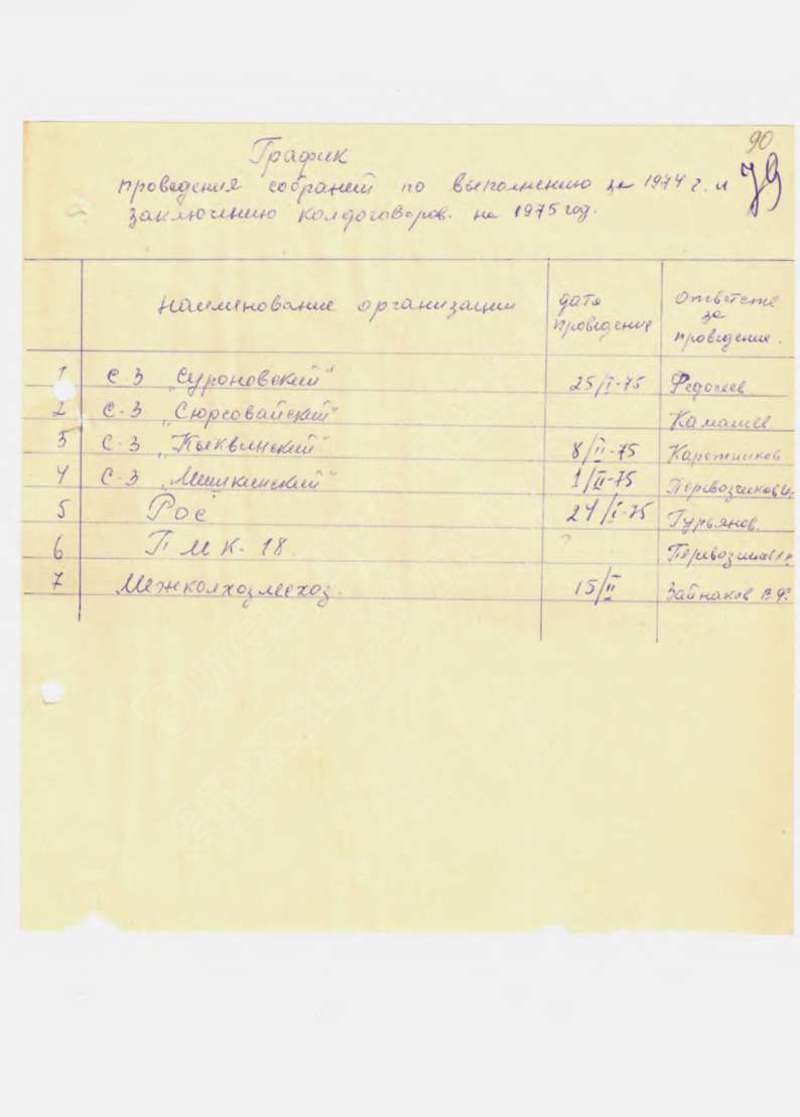 90
79
График
проведения собраний по выполнению за 1974 г. и
заключению колдоговоров. на 1975 год.
наименование организации
дата
проведения
ответств
за
проведение.
1 С-З „Суроновский" 25/I-75
2 С-З „Сюрсовайский" Камашев
3 С-З „Пыквинский" 8/II-75
4 С-З „Мишкинский" 1/II-75 Перевозчиков
5 Рос 24/I-75 Гурьянов.
6 ПМК-18. ? Перевозчиков
7 Межколхозлесхоз. 15/II Зайнаков В.Ф.